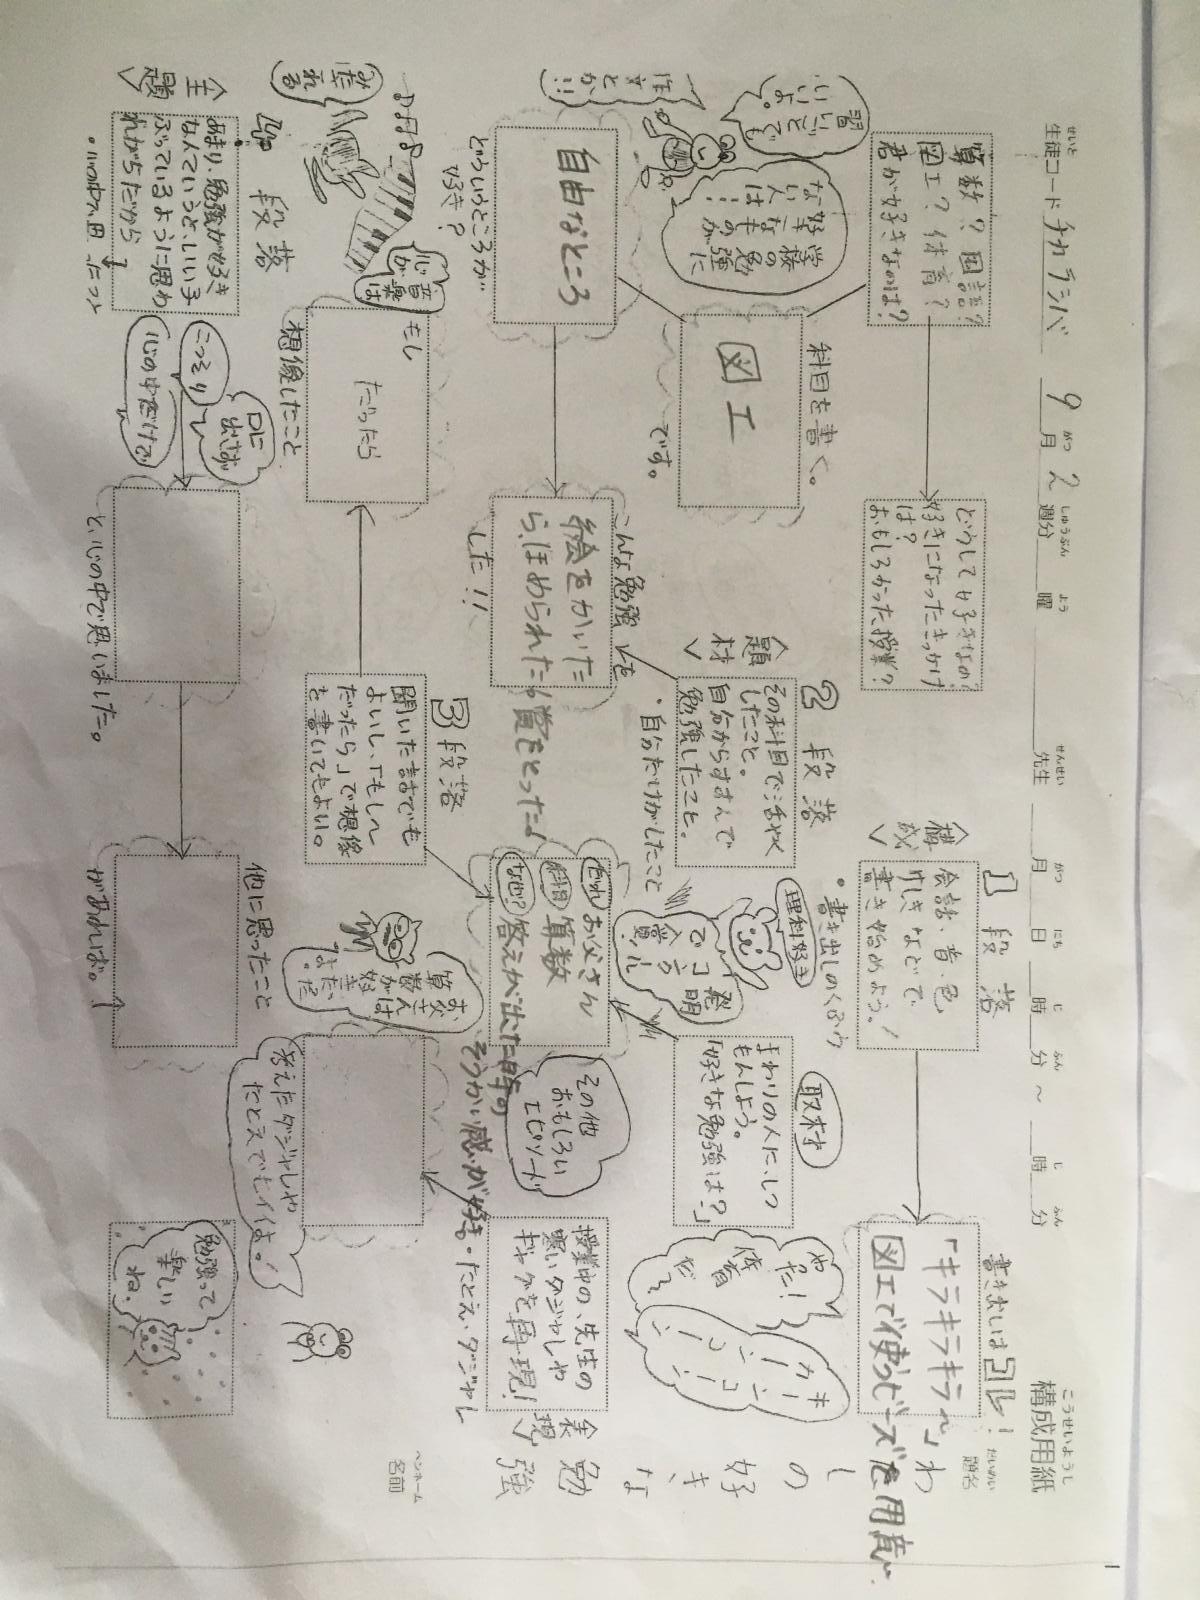 構成用紙
こうせいようし
生徒コード チカラシバ 9月2週分 曜 先生 月 日 時 分 ～ 時 分
せいと がつ しゅうぶん よう せんせい がつ にち じ ふん じ ふん
題名
だいめい
わたしの好きな勉強
ペンネーム
名前
書き出しはコレ！
「キラキラキラ〜」
図工で使うビーズを用意
〈構成〉
1段落
会話・音・色
けしきなどで
書き始めよう！
・書き出しのくふう
どうして好きなの？
好きになったきっかけ
は？
おもしろかった授業？
算数？国語？
図工？体育？
君が好きなのは？
科目を書く。
図工
です。
学校の勉強に
好きなものが
ない人は…
習いごとでも
いいよ。
作文とか！！
やったー！
体育だ〜
キーンコーン
カーンコーン
取材
まわりの人にしつ
もんしよう。
「好きな勉強は？」
理科好き
発明コンクールで入賞！
〈題材〉
2段落
その科目で活やく
したこと。
自分からすすんで
勉強したこと。
・自分だけがしたこと
こんな勉強しても
絵をかいた
ら、ほめられた。賞をとった。
した！！
自由なところ
どういうところが
好き？
〈表現〉
授業中の、先生の
寒いダジャレや
ギャグを再現！
・たとえ・ダジャレ
その他
おもしろい
エピソード
だれ お父さん
科目 算数
なぜ？ 答えが出た時の
そうかい感が好き。
お父さんは
算数が好き
だったよ。
3段落
聞いた話でも
よいし、「もし〜
だったら」で想像
を書いてもよい。
もし
だったら
想像したこと
音楽は
心が
みだれる
考えたダジャレや
たとえでもイイよ！
4段落
〈主題〉
あまり、勉強が好き
なんていうと、いい子
ぶっているように思わ
れがちだから↓
・心の中で思ったこと
口に
出さず
こっそり
心の中だけで
と、心の中で思いました。
他に思ったこと
があれば。↑
勉強って
楽しい
ね。